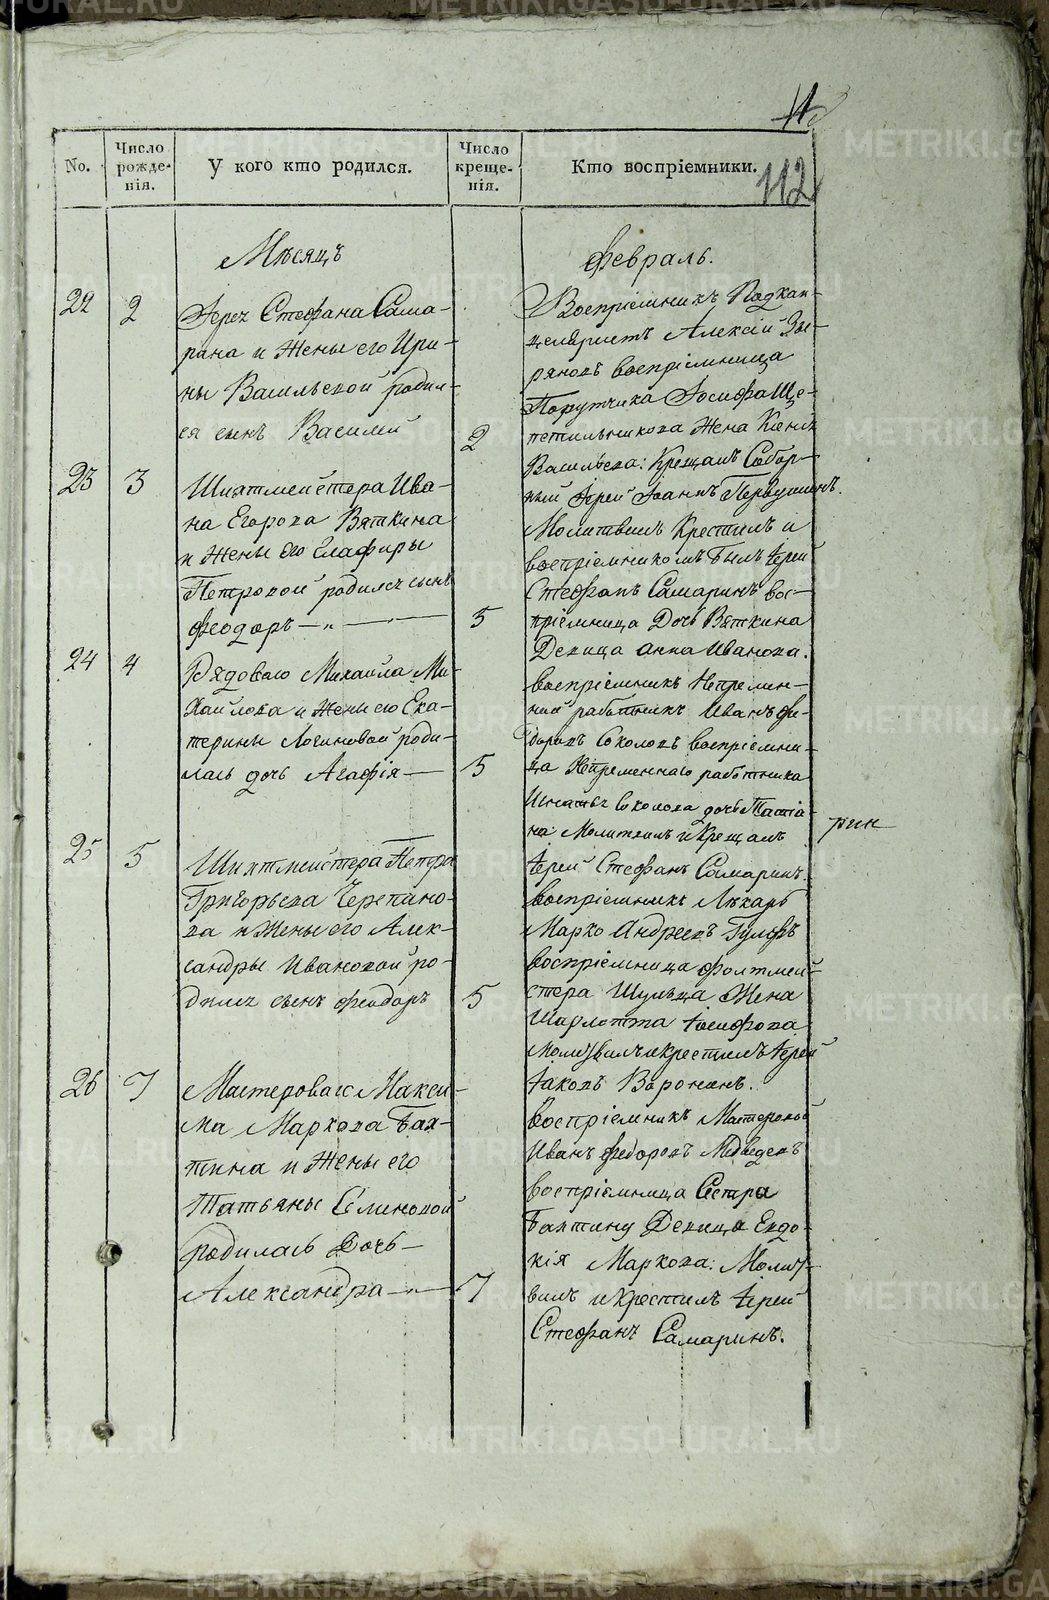 112
No.
Число рожде-нія.
У кого кто родился.
Число креще-нія.
Кто воспріемники.
Мѣсяцъ
Февраль.
22
2
Іерея Стефана Сама-
рина и Жены его Ири-
ны Васильевой родил-
ся сынъ Василій
2
Воспріемникъ Подкан-
целяристъ Алексѣй Зы-
ряновъ воспріемница
Порутчика Іосифа Ще-
петильникова Жена Ксенія
Васильева: Крещалъ Собор-
ный Іерей Іоаннъ Первушинъ.
23
3
Шихтмейстера Ива-
на Егорова Вяткина
и Жены его Глафиры
Петровой родился сынъ
Феодоръ
5
Молитвилъ Крестилъ и
воспріемникомъ былъ Іерей
Стефанъ Самаринъ вос-
пріемница Дочь Вяткина
Девица Анна Иванова.
24
4
Рядоваго Михаила Ми-
хайлова и Жены его Ека-
терины Логиновой роди-
лась дочь Агафія
5
воспріемникъ Непремен-
ный работникъ Иванъ Фе-
доровъ Соколовъ воспріемни-
ца Непременнаго работника
Игнатья Соколова дочь Татіа-
на Молитвилъ и Крещалъ
Іерей Стефанъ Самаринъ.
25
5
Шихтмейстера Петра
Григорьева Черепано-
ва и Жены его Алек-
сандры Ивановой ро-
дился сынъ Феодоръ
5
воспріемникъ Лѣкарь
Марко Андреевъ Гульфъ
воспріемница Форштмей-
стера Шульца Жена
Шарлотта Іосифова
молитвилъ и крестилъ Іерей
Іаковъ Воронинъ.
26
7
Мастероваго Макси-
ма Маркова Бах-
тина и Жены его
Татьяны Семеновой
родилась Дочь
Александра
7
воспріемникъ Мастеровой
Иванъ Федоровъ Медведевъ
воспріемница Сестра
Бахтину Девица Евдо-
кія Маркова: Молит-
вилъ и крестилъ Іерей
Стефанъ Самаринъ.
METRIKI.GASO-URAL.RU